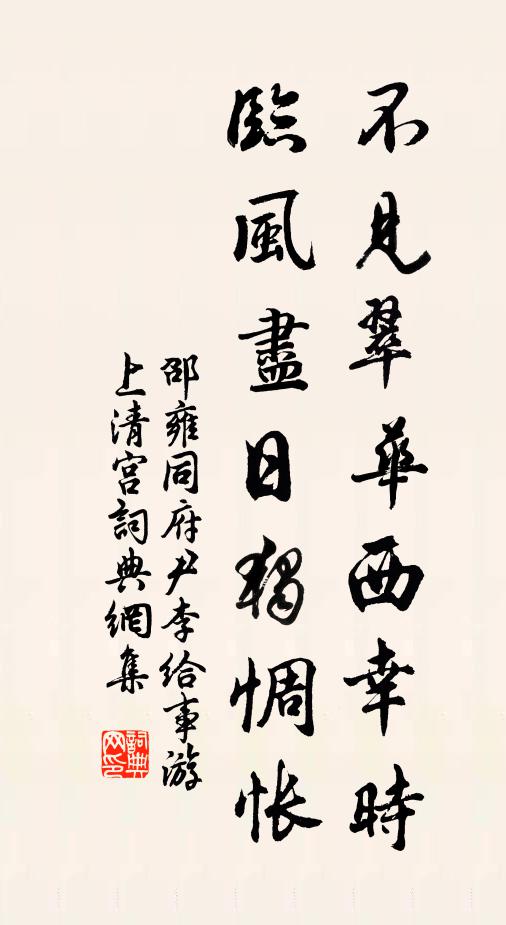 不見翠華西幸時
臨風盡日獨惆悵
邵雍同府尹李給事游
上清宮詞典網集
詞典
网印